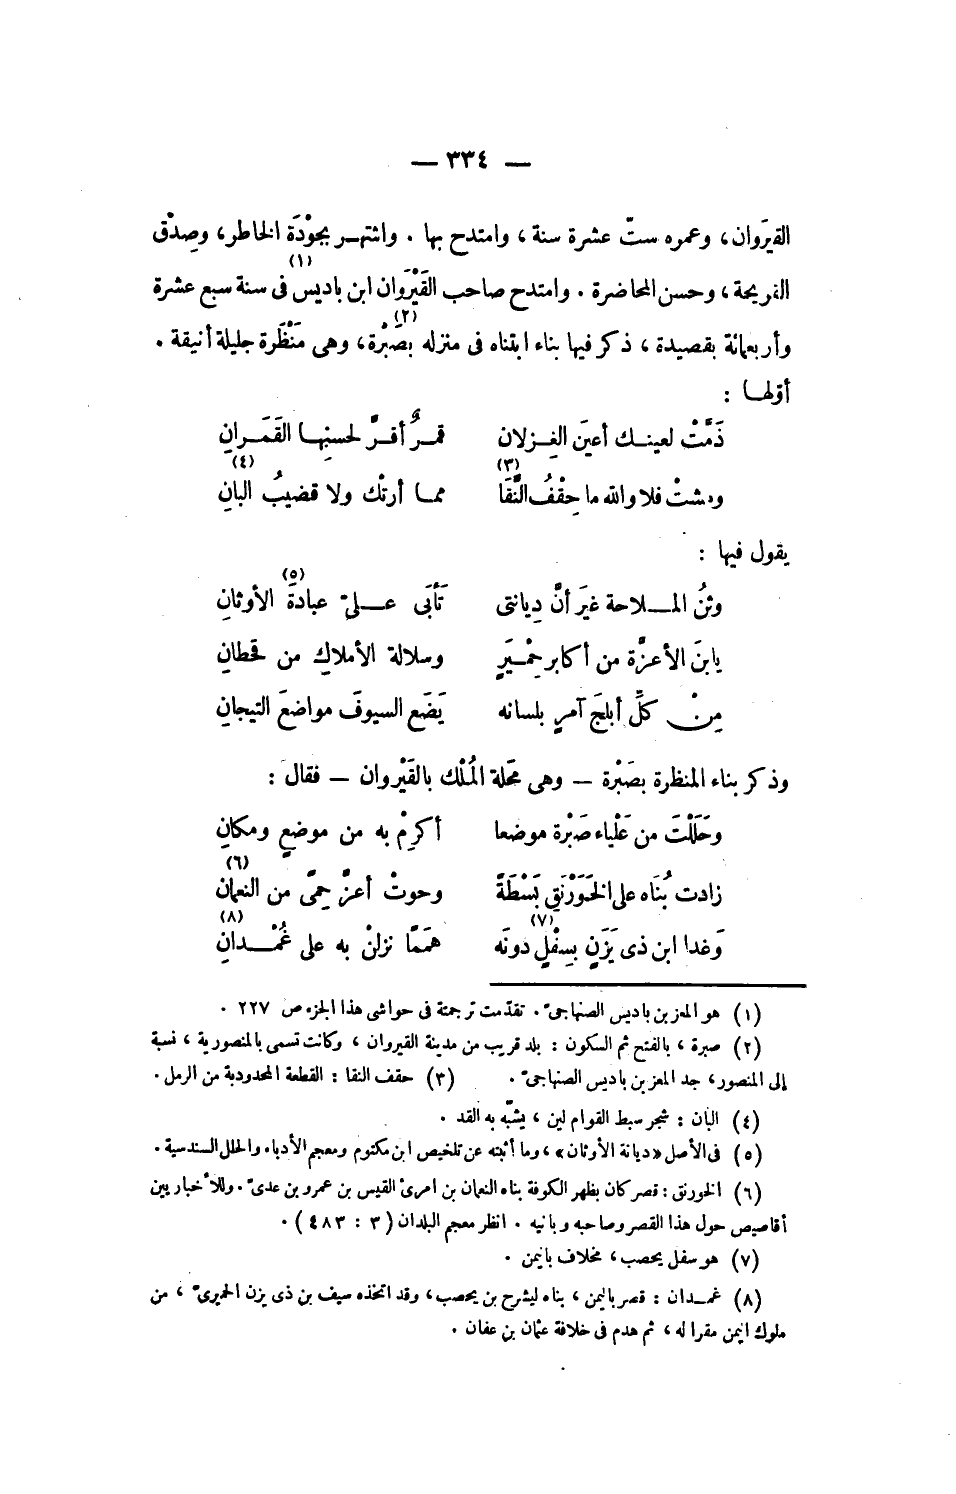 — ٣٣٤ —
القيرَوان، وعمره ستّ عشرة سنة، وامتدح بها. واشتهر بجوْدَة الخاطر، وصِدْق
القريحة، وحسن المحاضرة. وامتدح صاحب القَيْرَوان ابن باديس (١) فى سنة سبع عشرة
وأربعمائة بقصيدة، ذكر فيها بناء ابتناه فى منزله بصَبْرة (٢)، وهى مَنْظَرة جليلة أنيقة.
أوّلها:
ذَمَّتْ لعينك أعينَ الغِزلان قمرٌ أقرَّ لحسنِها القَمَرانِ
ومشتْ فلا والله ما حِقْفُ النَّقَا (٣) مما أرتْك ولا قضيبُ البانِ (٤)
يقول فيها:
وثنُ الملاحة غيرَ أنَّ دِيانتى تَأبَى علىّ عبادةَ (٥) الأوثانِ
يابنَ الأعزَّة من أكابر حِمْيَرٍ وسلالة الأملاكِ من قحطانِ
مِنْ كلِّ أبلجَ آمرٍ بلسانه يَضَع السيوفَ مواضعَ التيجانِ
وذكر بناء المنظرة بصَبْرة — وهى محَلة المُلْك بالقَيْروان — فقال:
وحَلَلْتَ من عَلْياء صَبْرة موضعا أكرِمْ به من موضعٍ ومكانِ
زادت بُنَاه على الخَوَرْنَقِ بَسْطَةً وحوتْ أعزَّ حِمًى من النعمان (٦)
وَغدا ابن ذى يَزَنٍ بسِفْلٍ (٧) دونَه هِمَمًا نزلنْ به على غُمْدانِ (٨)
(١) هو المعز بن باديس الصنهاجىّ. تقدّمت ترجمته فى حواشى هذا الجزء ص ٢٢٧.
(٢) صبرة، بالفتح ثم السكون: بلد قريب من مدينة القيروان، وكانت تسمى بالمنصورية، نسبة
إلى المنصور، جد المعز بن باديس الصنهاجىّ. (٣) حقف النقا: القطعة المحدودبة من الرمل.
(٤) البان: شجر سبط القوام لين، يشبّه به القد.
(٥) فى الأصل «ديانة الأوثان»، وما أثبته عن تلخيص ابن مكتوم ومعجم الأدباء والحلل السندسية.
(٦) الخورنق: قصر كان بظهر الكوفة بناه النعمان بن امرئ القيس بن عمرو بن عدىّ. وللأخباريين
أقاصيص حول هذا القصر وصاحبه وبانيه. انظر معجم البلدان (٣: ٤٨٣).
(٧) هو سفل يحصب، مخلاف باليمن.
(٨) غمدان: قصر باليمن، بناه ليشرح بن يحصب، وقد اتخذه سيف بن ذى يزن الحميرىّ، من
ملوك اليمن مقرا له، ثم هدم فى خلافة عثمان بن عفان.